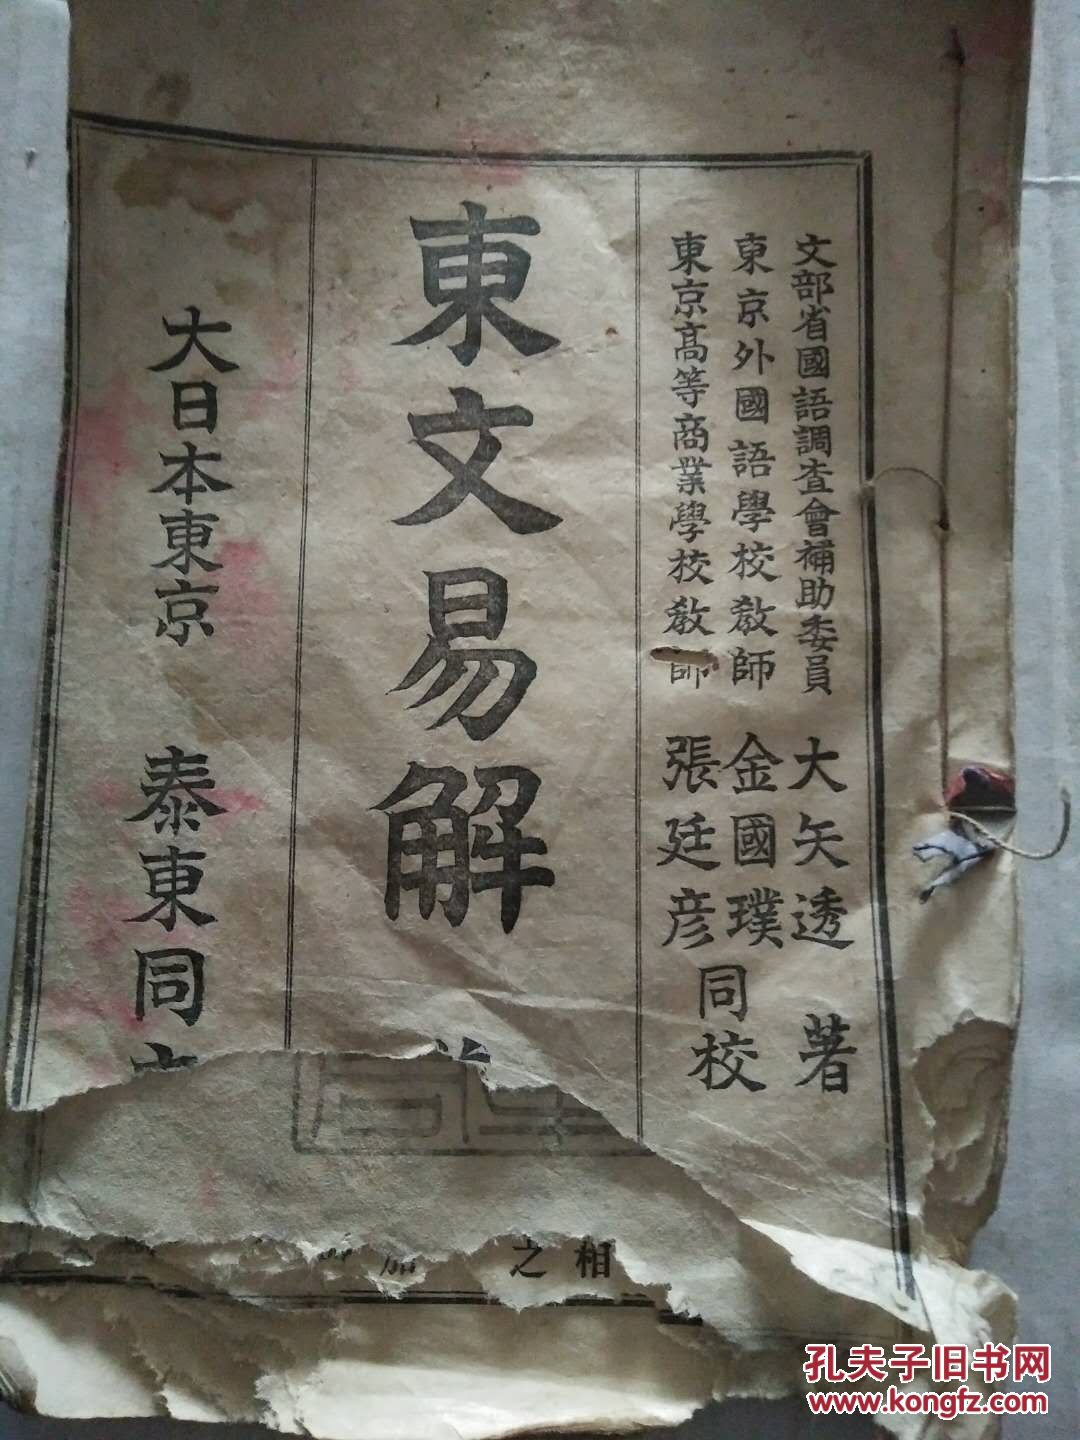 文部省國語調査會補助委員　大矢透　著
東京外國語學校教師　金國璞
東京高等商業學校教師　張廷彦
同校
東文易解
大日本東京　泰東同
相
之
孔夫子旧书网
www.kongfz.com